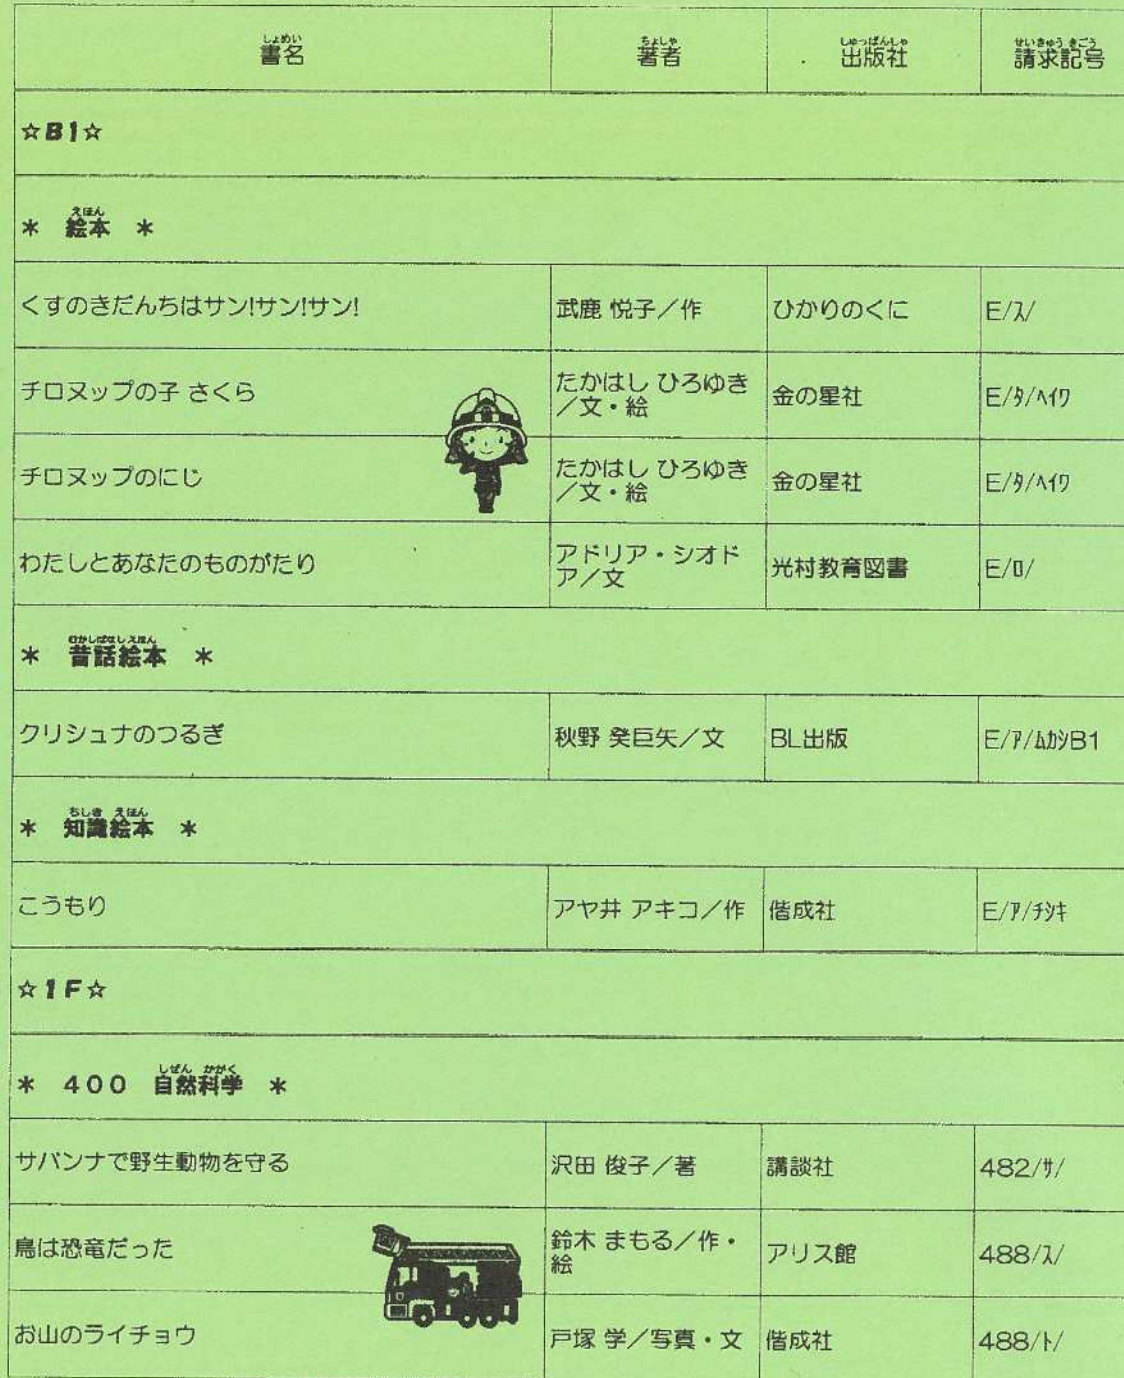 しょめい ちょしゃ しゅっぱんしゃ せいきゅう きごう
書名 著者 出版社 請求記号
☆B1☆
えほん
* 絵本 *
くすのきだんちはサン!サン!サン! 武鹿 悦子／作 ひかりのくに E/ｽ/
チロヌップの子 さくら たかはし ひろゆき／文・絵 金の星社 E/ﾀ/ﾍｲﾜ
チロヌップのにじ たかはし ひろゆき／文・絵 金の星社 E/ﾀ/ﾍｲﾜ
わたしとあなたのものがたり アドリア・シオドア／文 光村教育図書 E/ﾛ/
むかしばなしえほん
* 昔話絵本 *
クリシュナのつるぎ 秋野 癸巨矢／文 BL出版 E/ｱ/ﾑｶｼB1
ちしき えほん
* 知識絵本 *
こうもり アヤ井 アキコ／作 偕成社 E/ｱ/ﾁｼｷ
☆1F☆
しぜん かがく
* 400 自然科学 *
サバンナで野生動物を守る 沢田 俊子／著 講談社 482/ｻ/
鳥は恐竜だった 鈴木 まもる／作・絵 アリス館 488/ｽ/
お山のライチョウ 戸塚 学／写真・文 偕成社 488/ﾄ/